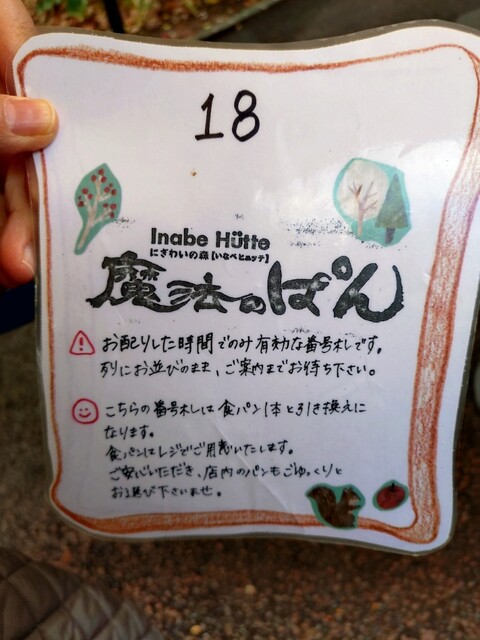 18
Inabe Hütte
にぎわいの森【いなべヒュッテ】
魔法のぱん
お配りした時間でのみ有効な番号札です。
列にお並びのまま、ご案内までお待ち下さい。
こちらの番号札は食パン1本と引き換えに
なります。
食パンはレジでご用意いたします。
ご安心いただき、店内のパンもごゆっくりと
お選び下さいませ。